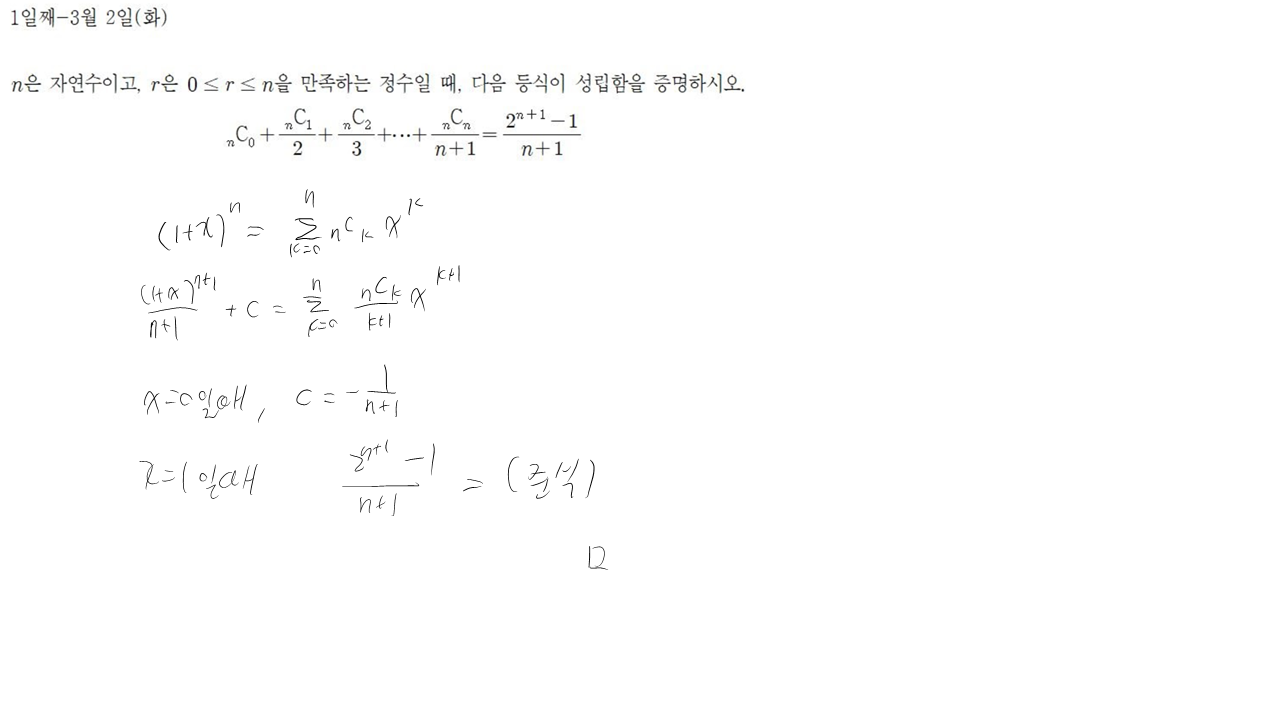 1일째-3월 2일(화)
n은 자연수이고, r은 0≤r≤n을 만족하는 정수일 때, 다음 등식이 성립함을 증명하시오.
ₙC₀ + ₙC₁/2 + ₙC₂/3 + ⋯ + ₙCₙ/(n+1) = (2^(n+1) − 1)/(n+1)
(1+x)^n = Σ_{k=0}^{n} nCk x^k
(1+x)^(n+1)/(n+1) + C = Σ_{k=0}^{n} nCk/(k+1) x^(k+1)
x=0일때, C = −1/(n+1)
x=1일때 (2^(n+1) − 1)/(n+1) = (준식)
□